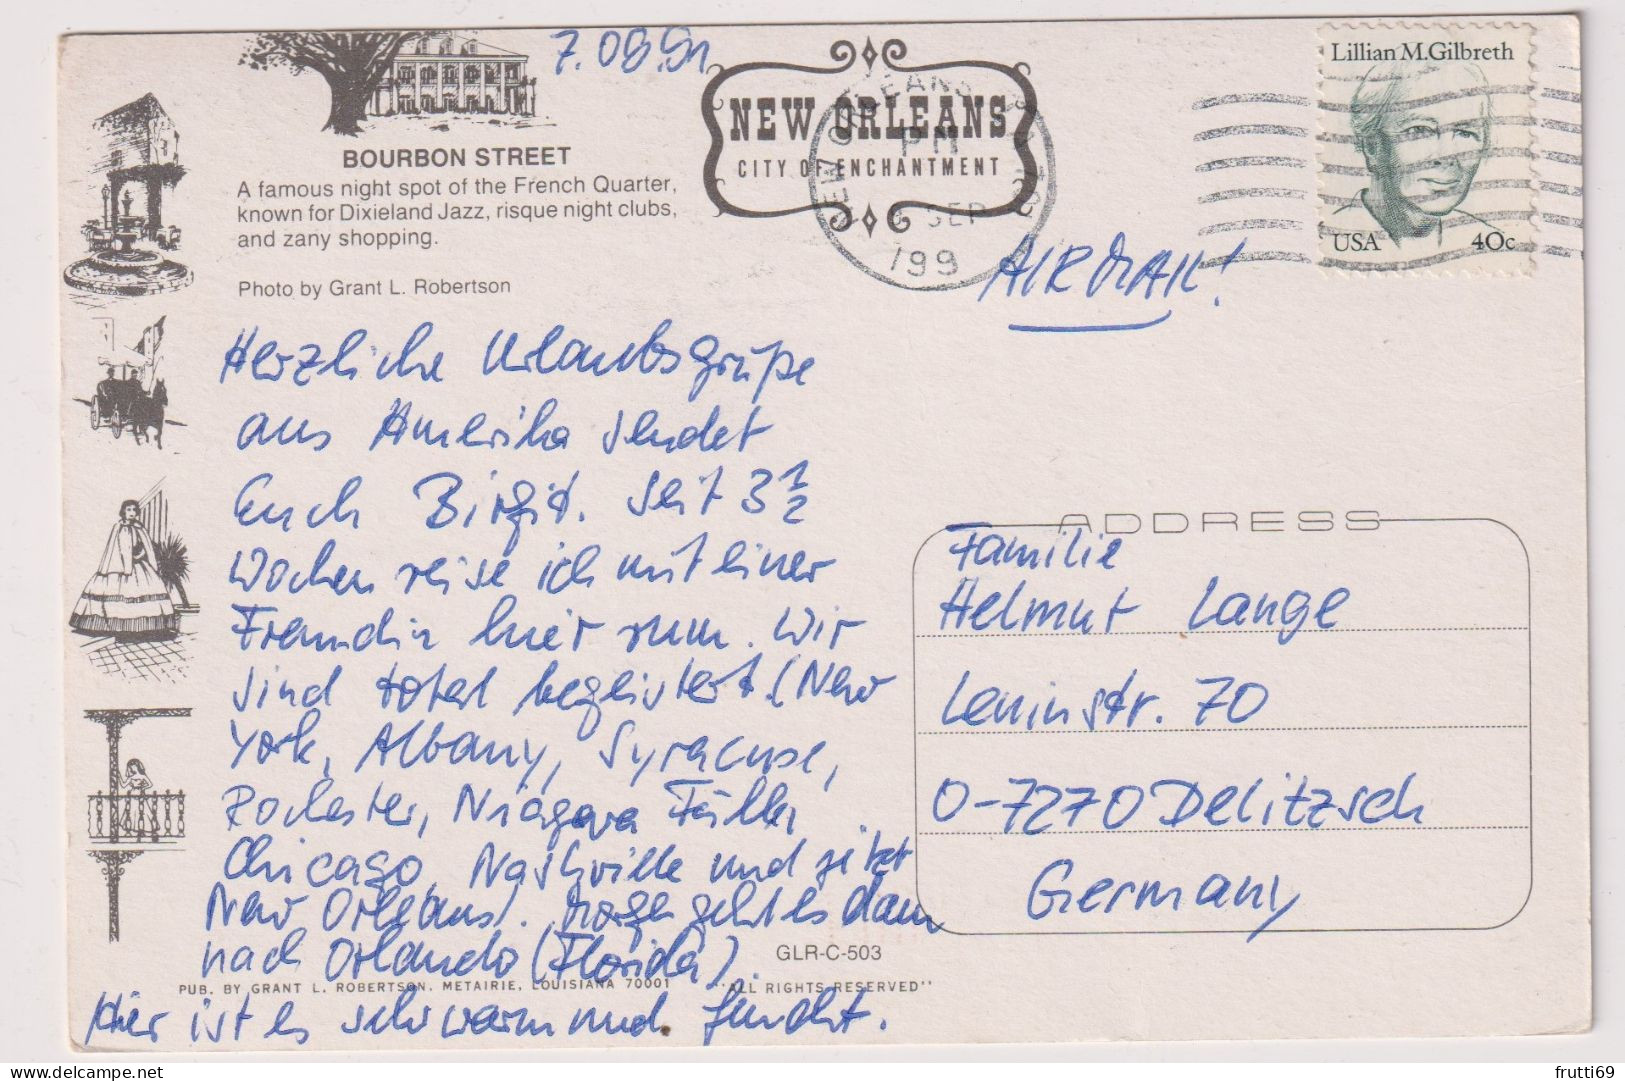 7.09.91
BOURBON STREET
A famous night spot of the French Quarter,
known for Dixieland Jazz, risque night clubs,
and zany shopping.
Photo by Grant L. Robertson
NEW ORLEANS
CITY OF ENCHANTMENT
NEW ORLEANS
PM
SEP
199
Lillian M. Gilbreth
USA 40c
AIRMAIL!
Herzliche Urlaubsgrüße
aus Amerika sendet
Euch Birgit. Seit 3 1/2
Wochen reise ich mit einer
Freundin hier rum. Wir
sind total begeistert! (New
York, Albany, Syracuse,
Rochester, Niagara Fälle,
Chicago, Nashville und jetzt
New Orleans). Morgen geht es dann
nach Orlando (Florida).
Hier ist es sehr warm und feucht.
ADDRESS
Familie
Helmut Lange
Leninstr. 70
O-7270 Delitzsch
Germany
GLR-C-503
PUB. BY GRANT L. ROBERTSON, METAIRIE, LOUISIANA 70001 "ALL RIGHTS RESERVED"
frutti69